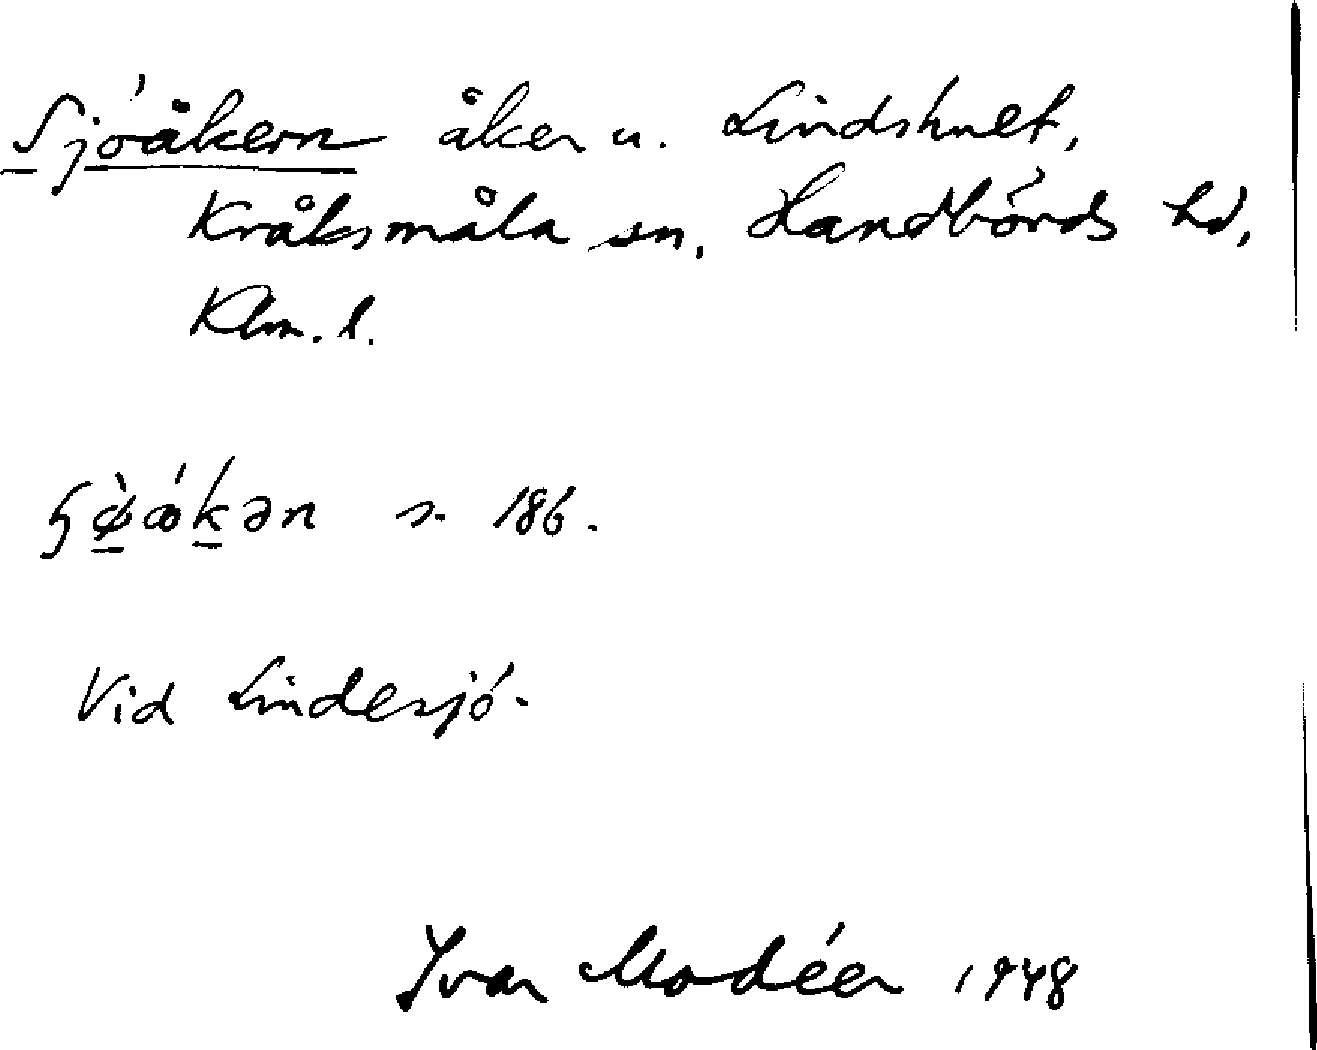 Sjöåkern åker u. Lindshult,
Kråksmåla sn, Handbörds hd,
Klm. l.
s. 186.
Vid Lindesjö.
Ivar Modéer 1948